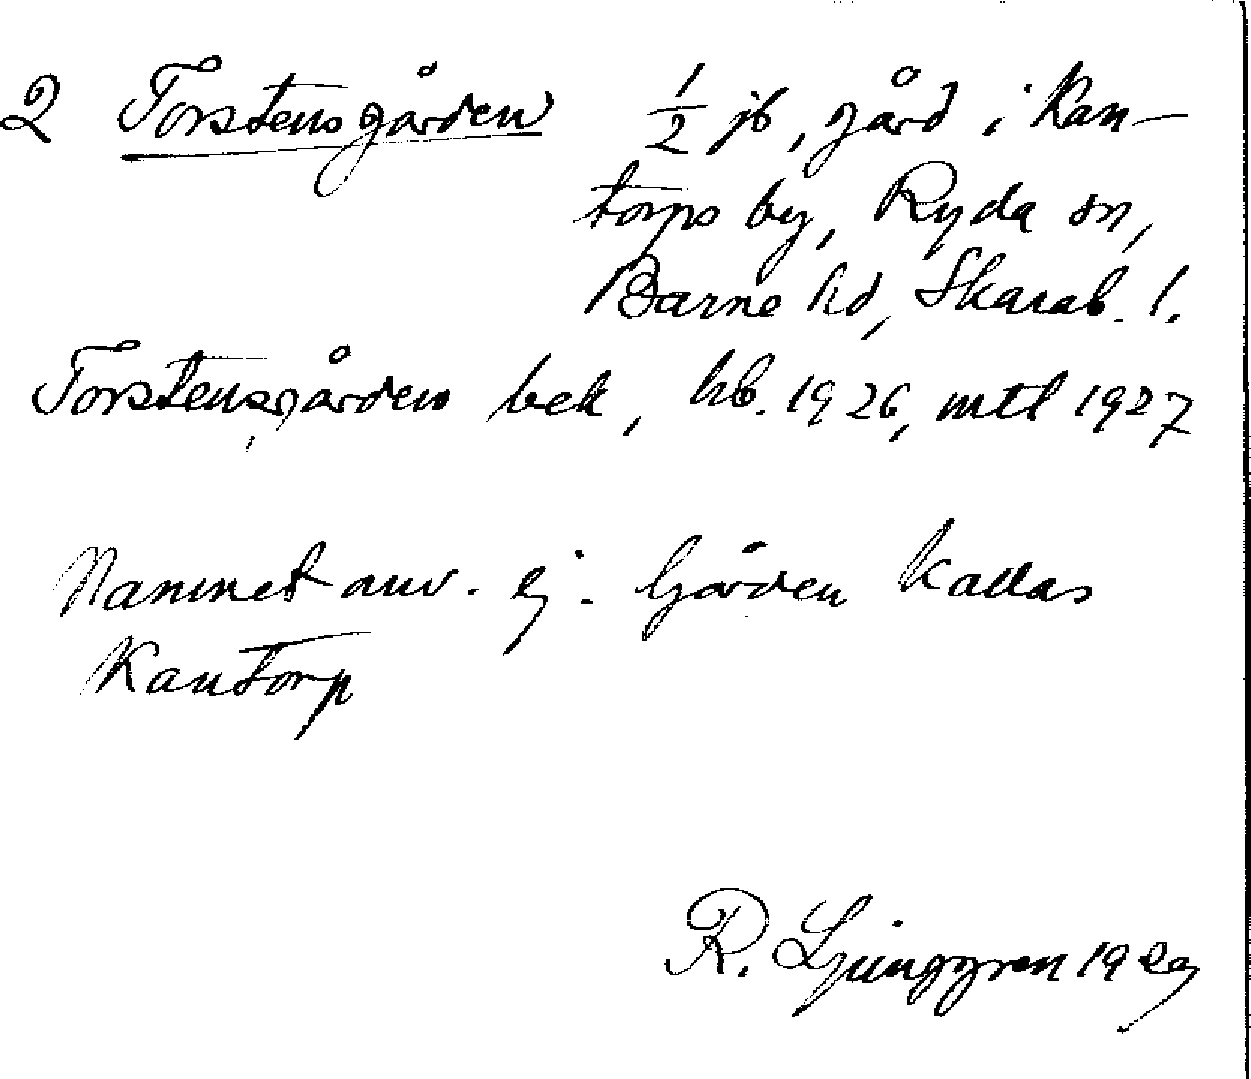 2 Torstensgården 1/2 jb, gård i Kan-
torps by, Ryda sn,
Barne hd, Skarab. l.
Torstensgården bek, hb. 1926, mtl 1927
Namnet anv. ej. Gården kallas
Kantorp
R. Ljunggren 1929